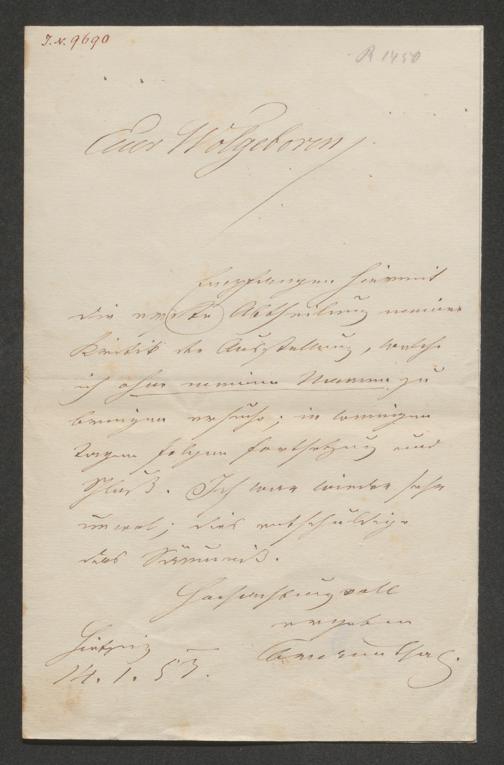 J.N. 9690
R 1450
Euer Wolgeboren
Empfangen hiermit
die erste Abtheilung meiner
Kritik der Ausstellung, welche
ich ohne meinen Namen zu
bringen ersuche; in wenigen
Tagen folgen Fortsetzung und
Schluß. Ich war wieder sehr
unwol; dies entschuldige
das Säumniß.
Hochachtungsvoll
ergeben
Hietzing
14. 1. 57.